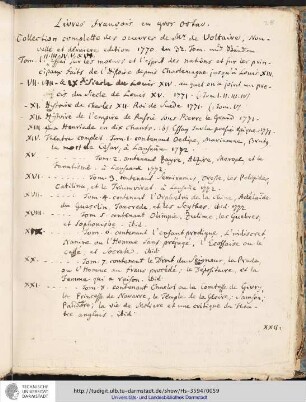 Livres françois en gros Octav.
Collection complette des oeuvres de Mr. de Voltaire, Nou-
velle et derniere edition 1770 en 32 Tom.
Tom. I. Essai sur les moeurs et l'esprit des nations et sur les prin-
cipaux faits de l'Histoire depuis Charlemagne jusqu'à Louis XIII.
Siecle de Louis XIV. auquel on a joint un pre-
cis du Siecle de Louis XV. 1771.
XI. Histoire de Charles XII. Roi de Suede 1771.
XII. Histoire de l'empire de Russie sous Pierre le Grand 1771.
XIII. La Henriade en dix Chants. Essay sur la poesie Epique 1771.
XIV. Théatre complet Tom. 1. contenant Oedipe, Mariamne, Brutus
la mort de Cesar, à Lausanne 1772.
XV. Tom. 2. contenant Zayre, Alzire, Merope, et le
Fanatisme. à Lausanne 1772.
XVI. Tom. 3. contenant Semiramis, Oreste, les Pelopides,
Catilina, et le Triumvirat. à Lausanne 1772.
XVII. Tom. 4. contenant l'Orphelin de la Chine, Adelaide
du Guesclin, Tancrede, et les Scythes. ibid. 1772.
XVIII. Tom. 5. contenant Olimpie, Zulime, les Guebres,
et Sophonisbe. ibid.
XIX. Tom. 6. contenant l'enfant prodigue, L'indiscret
Nanine ou l'Homme sans prejugé, l'Ecossaise ou le
Caffé et Socrate. ibid.
XX. Tom. 7. contenant le Droit du Seigneur, la Prude
ou l'Homme au Franc procedé, le Depositaire, et la
Femme qui a raison. ibid.
XXI. Tom. 8. contenant Charlot ou la Comtesse de Givri,
la Princesse de Navarre, le Temple de la Gloire, Samson,
Pandore, la vie de Moliere et une critique du Thea-
tre anglois. ibid.
XXII.
TECHNISCHE UNIVERSITÄT DARMSTADT
http://tudigit.ulb.tu-darmstadt.de/show/Hs-3594/0059
Universitäts- und Landesbibliothek Darmstadt